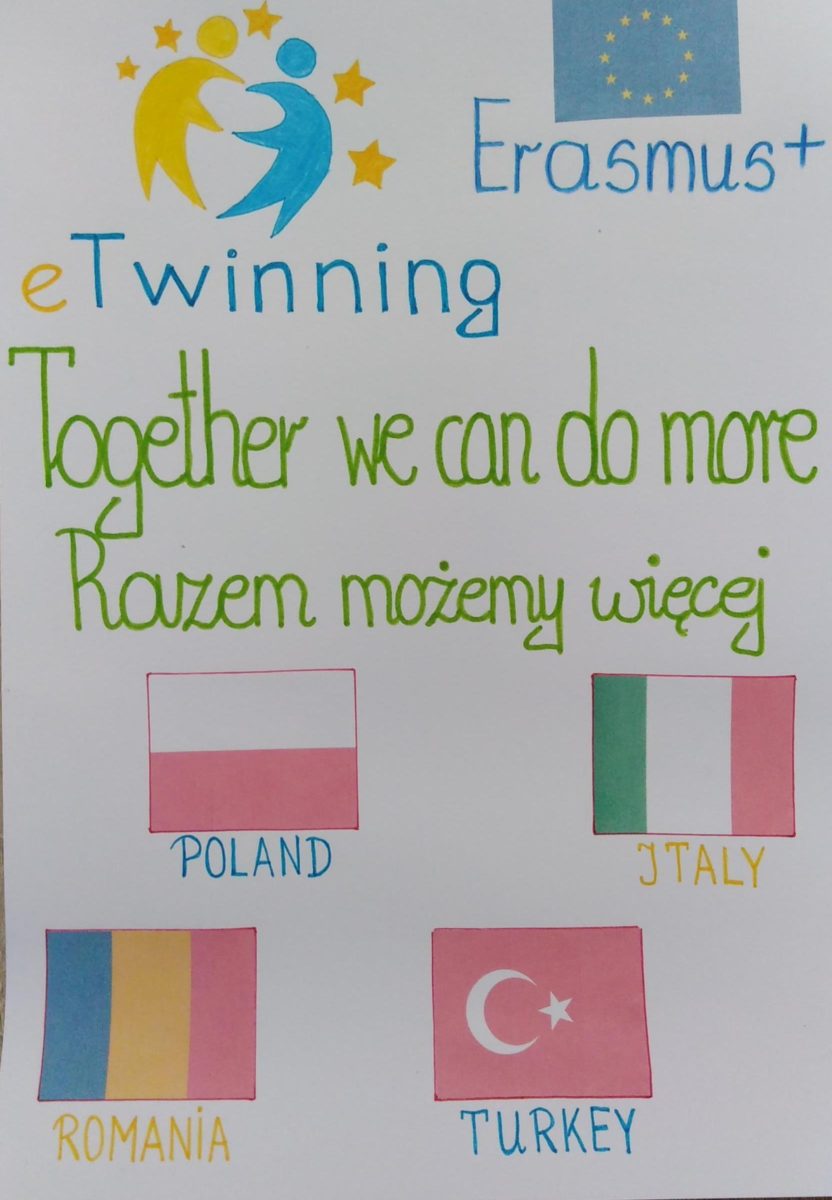 Erasmus+
eTwinning
Together we can do more
Razem możemy więcej
POLAND
ITALY
ROMANIA
TURKEY